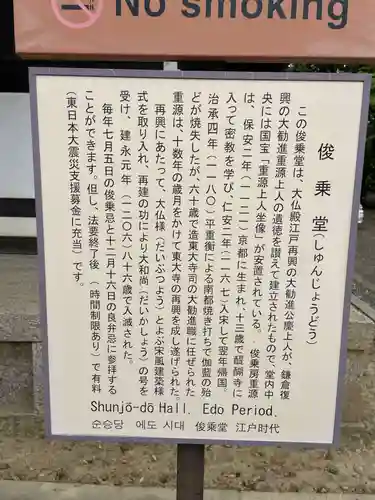 No smoking
俊乗堂(しゅんじょうどう)
この俊乗堂は、大仏殿江戸再興の大勧進公慶上人が、鎌倉復
興の大勧進重源上人の遺徳を讃えて建立されたもので、堂内中
央には国宝「重源上人坐像」が安置されている。俊乗房重源
は、保安二年(一一二一)京都に生まれ、十三歳で醍醐寺に
入って密教を学び、仁安二年(一一六七)入宋して翌年帰国。
治承四年(一一八〇)平重衡による南都焼き打ちで伽藍の殆
どが焼失したが、六十歳で造東大寺司の大勧進職に任ぜられた
重源は、十数年の歳月をかけて東大寺の再興を成し遂げられた。
再興にあたって、大仏様(だいぶつよう)とよぶ宋風建築様
式を取り入れ、再建の功により大和尚(だいかしょう)の号を
受け、建永元年(一二〇六)八十六歳で入滅された。
毎年七月五日の俊乗忌と十二月十六日の良弁忌に参拝する
ことができます。但し、法要終了後(時間制限あり)で有料
(東日本大震災支援募金に充当)です。
Shunjō-dō Hall. Edo Period.
순승당 에도 시대 俊乘堂 江户时代